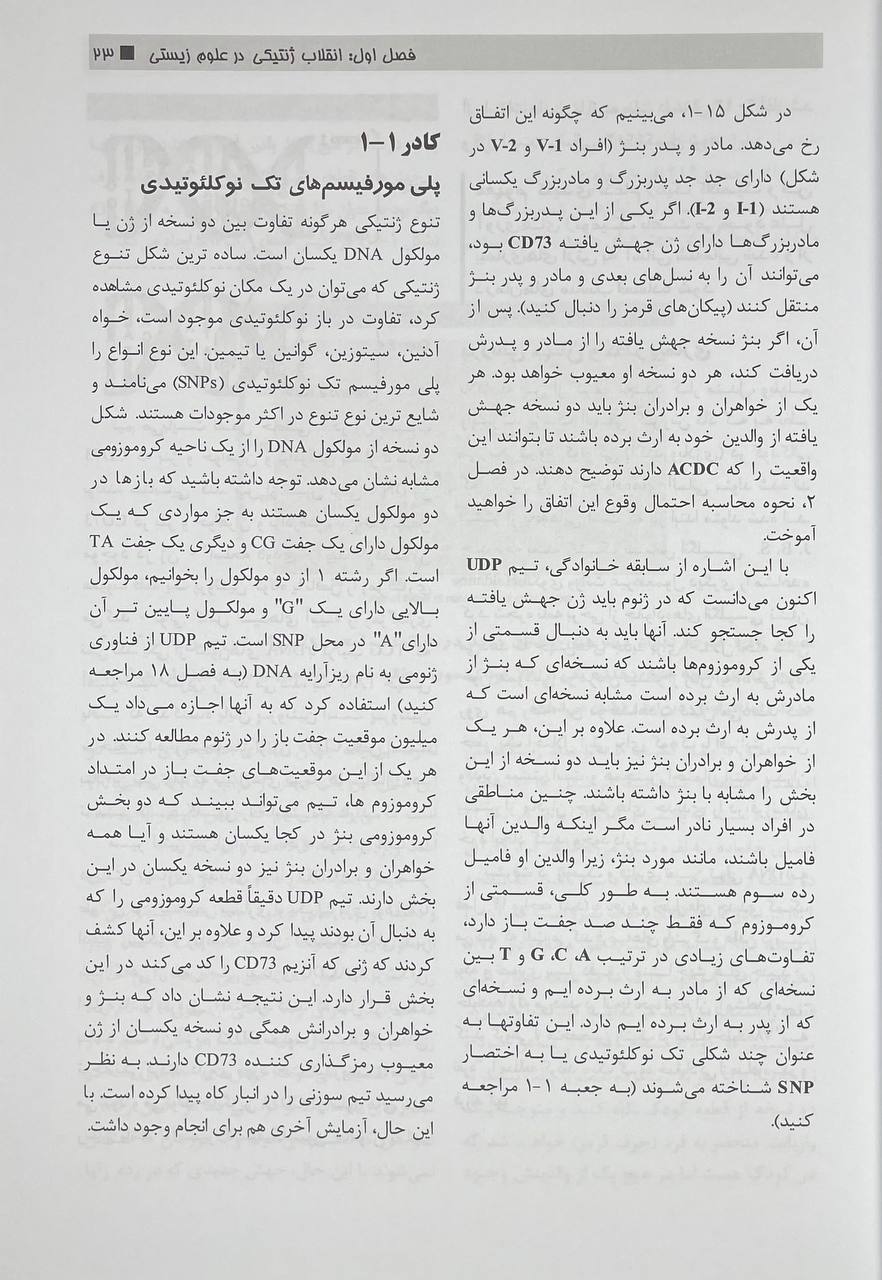 فصل اول: انقلاب ژنتیکی در علوم زیستی ■ ۲۳
در شکل ۱۵-۱، می‌بینیم که چگونه این اتفاق
رخ می‌دهد. مادر و پدر بنژ (افراد V-1 و V-2 در
شکل) دارای جد جد پدربزرگ و مادربزرگ یکسانی
هستند (I-1 و I-2). اگر یکی از این پدربزرگ‌ها و
مادربزرگ‌ها دارای ژن جهش یافته CD73 بود،
می‌توانند آن را به نسل‌های بعدی و مادر و پدر بنژ
منتقل کنند (پیکان‌های قرمز را دنبال کنید). پس از
آن، اگر بنژ نسخه جهش یافته را از مادر و پدرش
دریافت کند، هر دو نسخه او معیوب خواهد بود. هر
یک از خواهران و برادران بنژ باید دو نسخه جهش
یافته از والدین خود به ارث برده باشند تا بتوانند این
واقعیت را که ACDC دارند توضیح دهند. در فصل
۲، نحوه محاسبه احتمال وقوع این اتفاق را خواهید
آموخت.
با این اشاره از سابقه خانوادگی، تیم UDP
اکنون می‌دانست که در ژنوم باید ژن جهش یافته
را کجا جستجو کند. آنها باید به دنبال قسمتی از
یکی از کروموزوم‌ها باشند که نسخه‌ای که بنژ از
مادرش به ارث برده است مشابه نسخه‌ای است که
از پدرش به ارث برده است. علاوه بر این، هر یک
از خواهران و برادران بنژ نیز باید دو نسخه از این
بخش را مشابه با بنژ داشته باشند. چنین مناطقی
در افراد بسیار نادر است مگر اینکه والدین آنها
فامیل باشند، مانند مورد بنژ، زیرا والدین او فامیل
رده سوم هستند. به طور کلی، قسمتی از
کروموزوم که فقط چند صد جفت باز دارد،
تفاوت‌های زیادی در ترتیب G ،C ،A و T بین
نسخه‌ای که از مادر به ارث برده ایم و نسخه‌ای
که از پدر به ارث برده ایم دارد. این تفاوتها به
عنوان چند شکلی تک نوکلئوتیدی یا به اختصار
SNP شناخته می‌شوند (به جعبه ۱-۱ مراجعه
کنید).
کادر ۱-۱
پلی مورفیسم‌های تک نوکلئوتیدی
تنوع ژنتیکی هرگونه تفاوت بین دو نسخه از ژن یا
مولکول DNA یکسان است. ساده ترین شکل تنوع
ژنتیکی که می‌توان در یک مکان نوکلئوتیدی مشاهده
کرد، تفاوت در باز نوکلئوتیدی موجود است، خواه
آدنین، سیتوزین، گوانین یا تیمین. این نوع انواع را
پلی مورفیسم تک نوکلئوتیدی (SNPs) می‌نامند و
شایع ترین نوع تنوع در اکثر موجودات هستند. شکل
دو نسخه از مولکول DNA را از یک ناحیه کروموزومی
مشابه نشان می‌دهد. توجه داشته باشید که بازها در
دو مولکول یکسان هستند به جز مواردی که یک
مولکول دارای یک جفت CG و دیگری یک جفت TA
است. اگر رشته ۱ از دو مولکول را بخوانیم، مولکول
بالایی دارای یک "G" و مولکول پایین تر آن
دارای"A" در محل SNP است. تیم UDP از فناوری
ژنومی به نام ریزآرایه DNA (به فصل ۱۸ مراجعه
کنید) استفاده کرد که به آنها اجازه می‌داد یک
میلیون موقعیت جفت باز را در ژنوم مطالعه کنند. در
هر یک از این موقعیت‌های جفت باز در امتداد
کروموزوم ها، تیم می‌تواند ببیند که دو بخش
کروموزومی بنژ در کجا یکسان هستند و آیا همه
خواهران و برادران بنژ نیز دو نسخه یکسان در این
بخش دارند. تیم UDP دقیقاً قطعه کروموزومی را که
به دنبال آن بودند پیدا کرد و علاوه بر این، آنها کشف
کردند که ژنی که آنزیم CD73 را کد می‌کند در این
بخش قرار دارد. این نتیجه نشان داد که بنژ و
خواهران و برادرانش همگی دو نسخه یکسان از ژن
معیوب رمزگذاری کننده CD73 دارند. به نظر
می‌رسید تیم سوزنی را در انبار کاه پیدا کرده است. با
این حال، آزمایش آخری هم برای انجام وجود داشت.